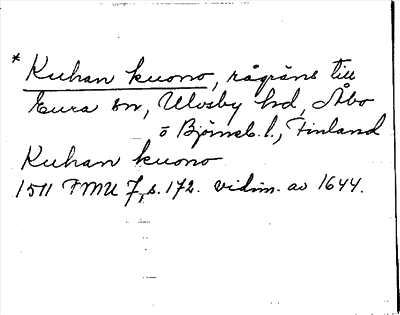 * Kuhan kuono, rågräns till
Eura sn, Ulvsby hd, Åbo
o Björneb. l., Finland
Kuhan kuono
1511 FMU 7, s. 172. vidim. av 1644.